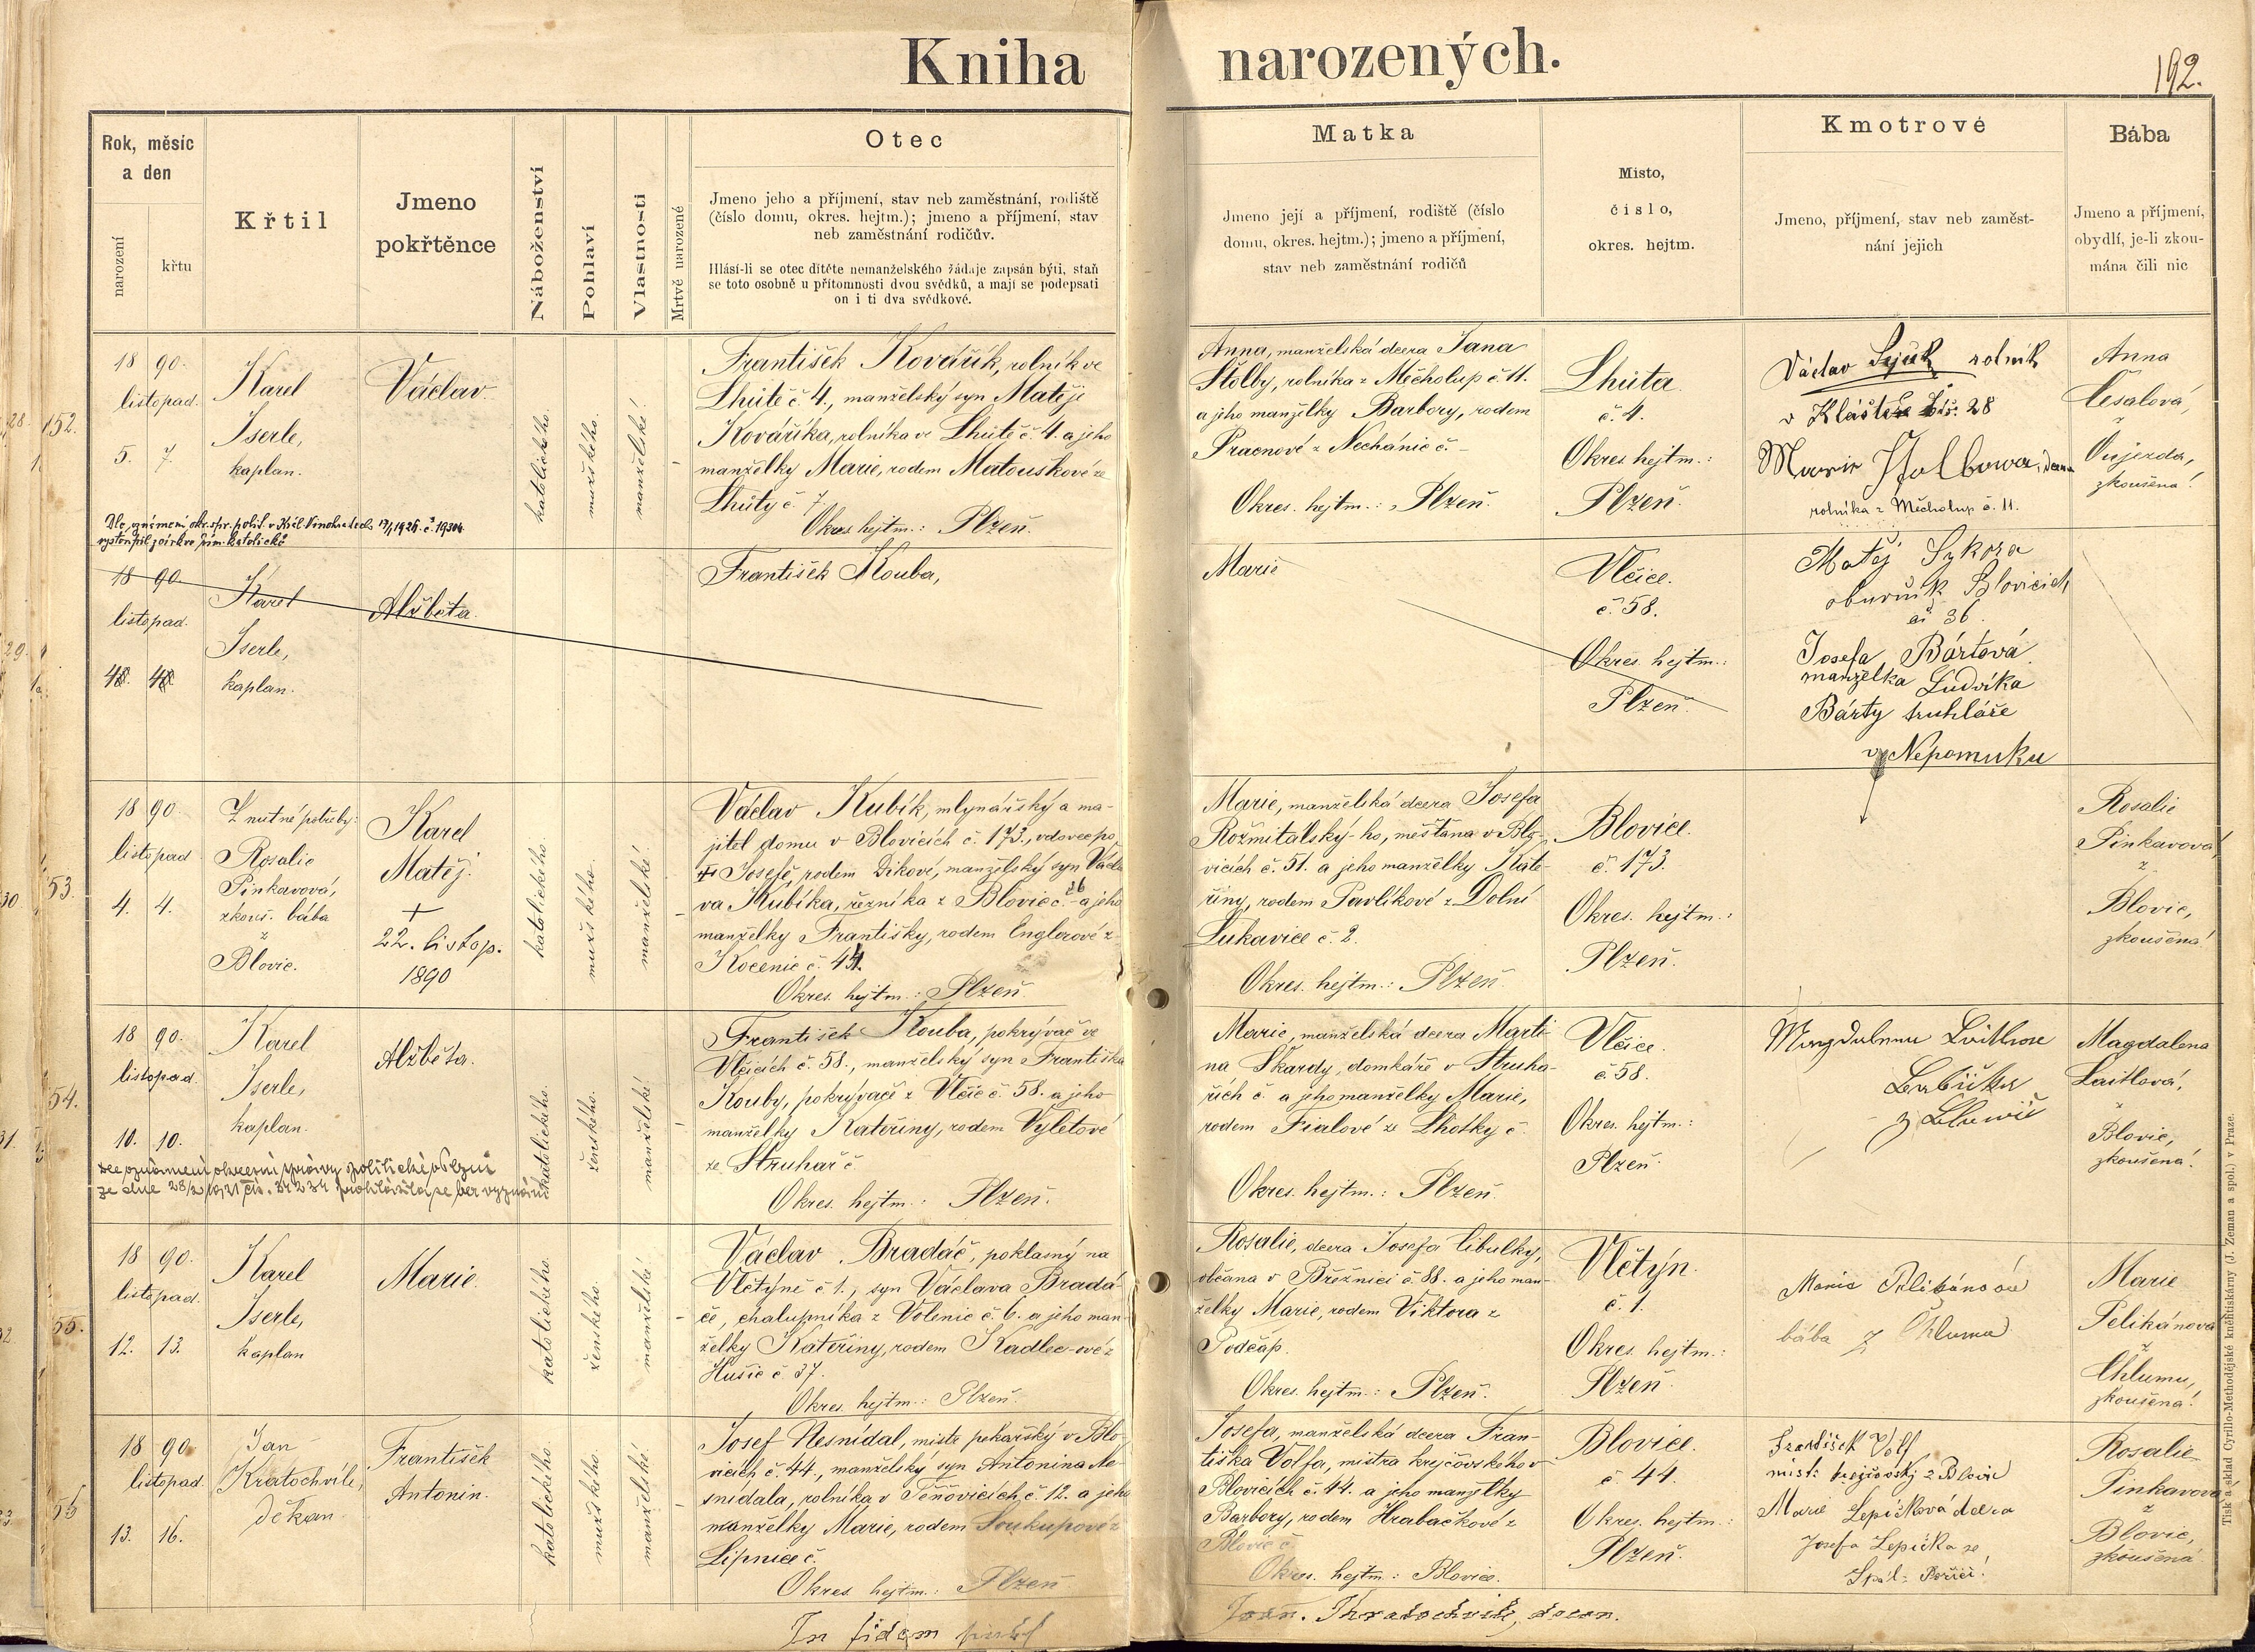 Kniha narozených.
192.
Rok, měsíc
a den
narození
křtu
Křtil
Jmeno
pokřtěnce
Náboženství
Pohlaví
Vlastnosti
Mrtvě narozené
Otec
Jmeno jeho a příjmení, stav neb zaměstnání, rodiště
(číslo domu, okres. hejtm.); jmeno a příjmení, stav
neb zaměstnání rodičův.
Hlásí-li se otec dítěte nemanželského žádaje zapsán býti, staň
se toto osobně u přítomnosti dvou svědků, a mají se podepsati
on i ti dva svědkové.
Matka
Jmeno její a příjmení, rodiště (číslo
domu, okres. hejtm.); jmeno a příjmení,
stav neb zaměstnání rodičů
Místo,
číslo,
okres. hejtm.
Kmotrové
Jmeno, příjmení, stav neb zaměst-
nání jejich
Bába
Jmeno a příjmení,
obydlí, je-li zkou-
mána čili nic
152.
18 90.
listopad.
5. 7.
Karel
Iserle,
kaplan.
Václav
katolického.
mužského.
manželské!
František Kovářík, rolník ve
Lhůtě č. 4., manželský syn Matěje
Kováříka, rolníka ve Lhůtě č. 4. a jeho
manželky Marie, rodem Matouškové ze
Lhůty č. 7
Okres. hejtm.: Plzeň.
Anna, manželská dcera Jana
Štolby, rolníka z Měcholup č. 11.
a jeho manželky Barbory, rodem
Pracnové z Nechánic č. –
Okres. hejtm.: Plzeň.
Lhůta
č. 4.
Okres. hejtm.:
Plzeň.
Václav rolník
v Klášteře 28
Marie Stolbowa, dcera
rolníka z Měcholup č. 11.
Anna
Česalová,
z
Oujezda,
zkoušená!
Dle oznámení okr. spr. polit. v Král. Vinohradech 1926 č. 19304
vystoupil z církve řím. katolické
18 90
listopad.
Karel
Iserle,
kaplan.
Alžběta.
František Kouba,
Marie
Vlčice.
č. 58.
Okres. hejtm.:
Plzeň.
Matěj Sykora
obuvník Blovicích
čí 36.
Josefa Bártová
manželka Ludvíka
Bárty truhláře
v Nepomuku
53.
18 90
listopad
4. 4.
Z nutné potřeby:
Rosalie
Pinkavová,
zkouš. bába
z
Blovic.
Karel
Matěj.
+
22. listop.
1890
katolického.
mužského.
manželské!
Václav Kubík, mlynářský a ma-
jitel domu v Blovicích č. 173., vdovec po
+ Josefě, rodem Dikové, manželský syn Václa
va Kubíka, řezníka z Blovic č. 26 a jeho
manželky Františky, rodem Englerové z
Kocenic č. 44.
Okres. hejtm.: Plzeň.
Marie, manželská dcera Josefa
Rožmitálský-ho, měšťana v Blo-
vicích č. 51. a jeho manželky Kate-
řiny, rodem Pavlíkové z Dolní
Lukavice č. 2.
Okres. hejtm.: Plzeň.
Blovice.
č. 173.
Okres. hejtm.:
Plzeň.
Rosalie
Pinkavová,
z
Blovic,
zkoušená!
54.
18 90.
listopad.
10. 10.
Karel
Iserle,
kaplan.
Alžběta.
katolického.
ženského.
manželské
František Kouba, pokrývač ve
Vlčicích č. 58., manželský syn Františka
Kouby, pokrývače z Vlčic č. 58. a jeho
manželky Kateřiny, rodem Vyletové
ze Struhař č
Okres. hejtm.: Plzeň.
Marie, manželská dcera Marti-
na Škardy, domkáře v Struha-
řích č. a jeho manželky Marie,
rodem Fialové ze Lhotky č.
Okres. hejtm.: Plzeň.
Vlčice.
č. 58.
Okres. hejtm.:
Plzeň.
Babička
z
Magdalena
Laitlová,
z
Blovic,
zkoušená!
Dle oznámení okresní správy politické v Plzni
ze dne 28/2 1921 čís. 34234 prohlásila se bez vyznání
55.
18 90.
listopad.
12. 13.
Karel
Iserle,
kaplan
Marie.
katolického.
ženského.
manželské
Václav Bradáč, poklasný na
Vlčtýně č 1., syn Václava Bradá-
če, chalupníka z Volenic č. 6. a jeho man
želky Kateřiny, rodem Kadlec-ové z
Hušic č. 37.
Okres. hejtm.: Plzeň.
Rosalie, dcera Josefa Cibulky,
občana v Březnici č. 88. a jeho man-
želky Marie, rodem Viktora z
Podčáp.
Okres. hejtm.: Plzeň.
Vlčtýn.
č. 1.
Okres. hejtm.:
Plzeň.
Marie Pelikánová
bába z Chlumu
Marie
Pelikánová
z
Chlumu,
zkoušená!
18 90
listopad
13. 16.
Jan
Kratochvíle,
děkan.
František
Antonín.
katolického.
mužského.
manželské.
Josef Nesnídal, mistr pekařský v Blo-
vicích č. 44., manželský syn Antonína Ne-
snídala, rolníka v Těňovicích č. 12. a jeho
manželky Marie, rodem Soukupové z
Lipnice č.
Okres. hejtm.: Plzeň
Josefa, manželská dcera Fran-
tiška Volfa, mistra krejčovského v
Blovicích č. 44. a jeho manželky
Barbory, rodem Hrabačkové z
Blovic č.
Okres. hejtm.: Blovice.
Blovice.
č 44.
Okres. hejtm.:
Plzeň.
František Volf
mistr krejčovský z Blovic
Marie Lepičková dcera
Josefa Lepička ze
Spál. Poříčí!
Rosalie
Pinkavová
z
Blovic,
zkoušená
In fidem
Joan. Kratochvíle, decan.
Tisk a sklad Cyrillo-Methodějské knihtiskárny (J. Zeman a spol.) v Praze.